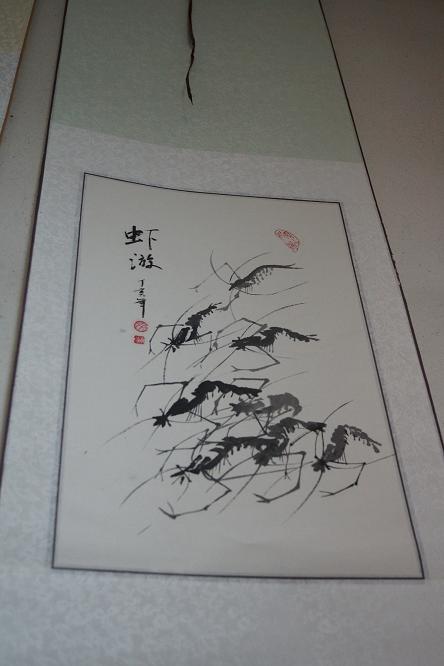 虾
游
丁亥年